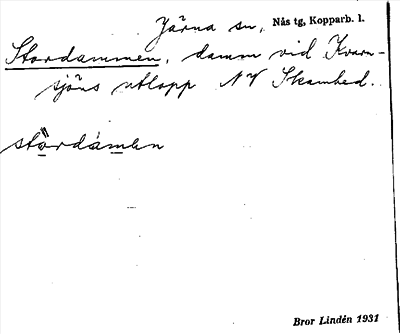 Järna sn, Nås tg, Kopparb. l.
Stordammen, damm vid Kvarn-
sjöns utlopp NV Skamhed.
stördámen
Bror Lindén 1931